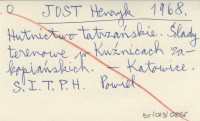 JOST Henryk 1968.
Hutnictwo tatrzańskie. Ślady
terenowe po Kuźnicach za-
kopiańskich. – Katowice.
S.I.T.P.H. Powiel